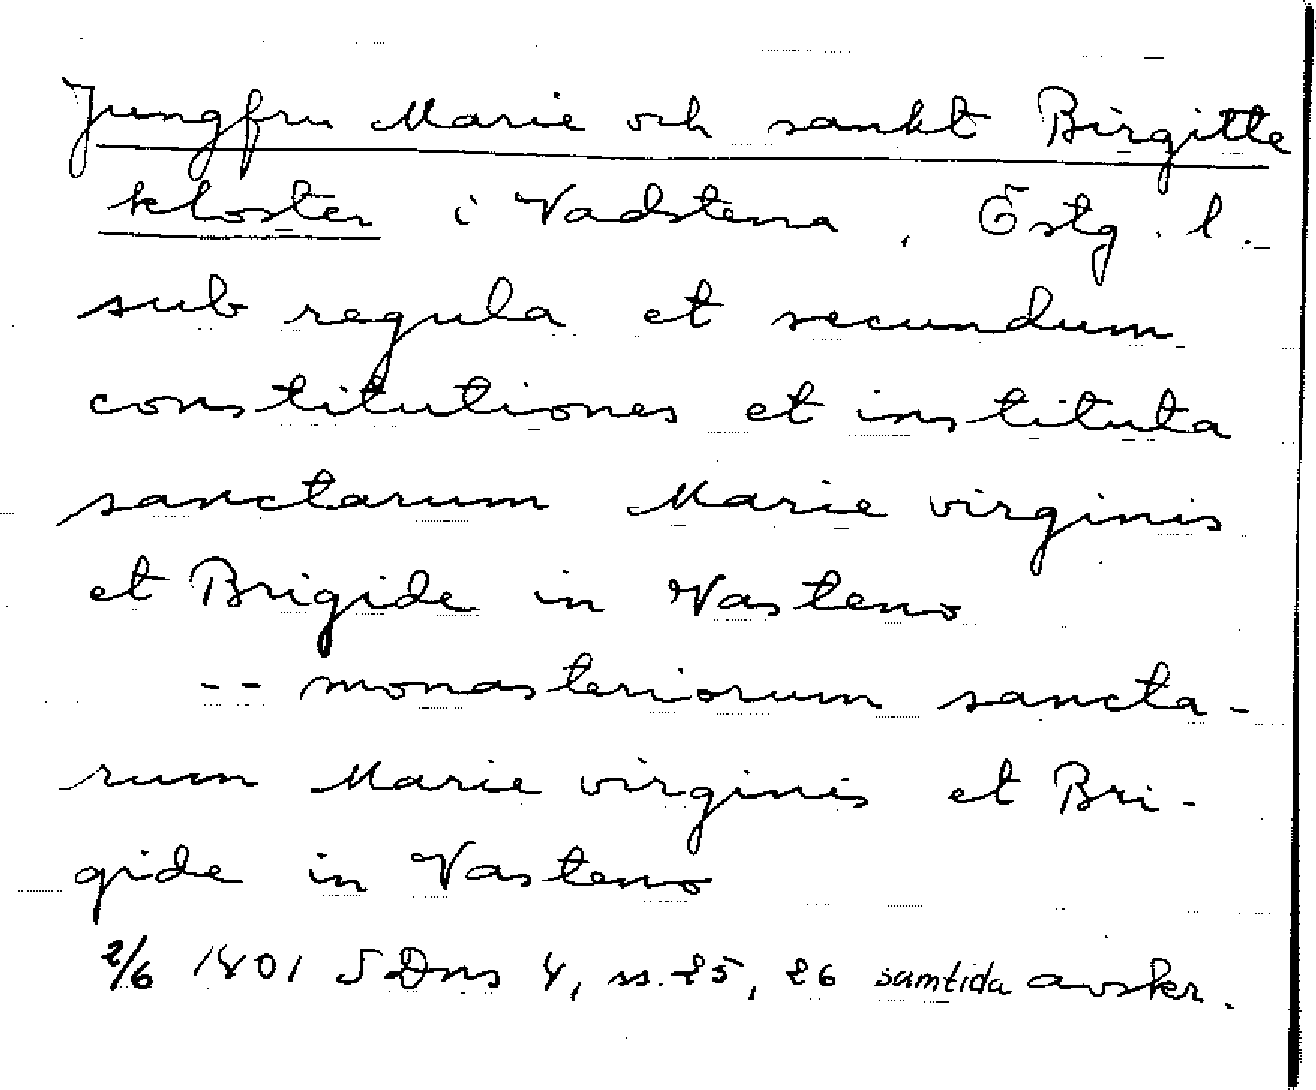 Jungfru Marie och sankt Birgitte
kloster i Vadstena, Östg. l.
sub regula et secundum
constitutiones et instituta
sanctarum Marie virginis
et Brigide in Wasteno
-- monasteriorum sancta-
rum Marie virginis et Bri-
gide in Vasteno
2/6 1401 SDns 1, ss. 25, 26 samtida avskr.